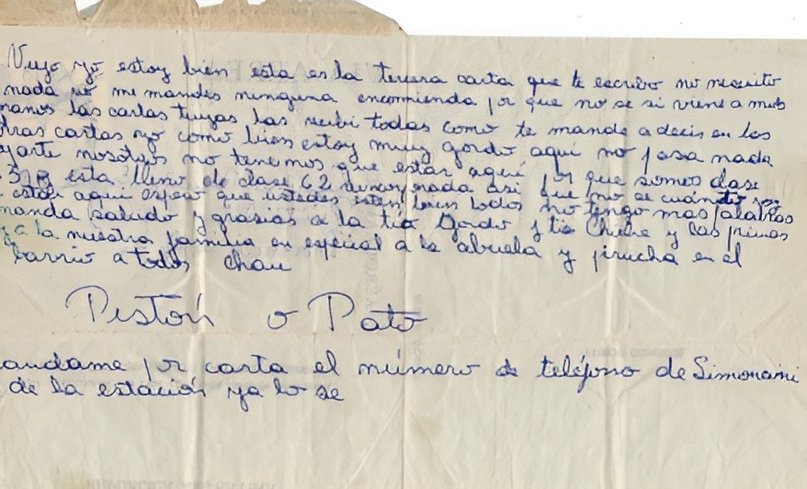 Viejo yo estoy bien esta es la tercera carta que te escribo no necesito
nada no me mandes ninguna encomienda por que no se si viene a mis
manos las cartas tuyas las recibi todas como te mande a decir en las
otras cartas yo como bien estoy muy gordo aqui no pasa nada
aparte nosotros no tenemos que estar aqui por que somos clase
esta lleno de clase 62 nada asi que no se cuánto
estar aqui espero que ustedes esten bien todos no tengo mas palabras
manda saludo y grasias a la tia Gordo y tia y las primas
y a la nuestra familia en especial a la abuela y pirucha en el
barrio a todos chau
Pistón o Pato
andame por carta el número de teléfono de Simonami
de la estación ya lo se